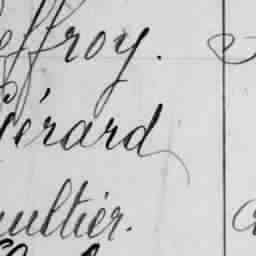 effroy.
Gérard
aultier.